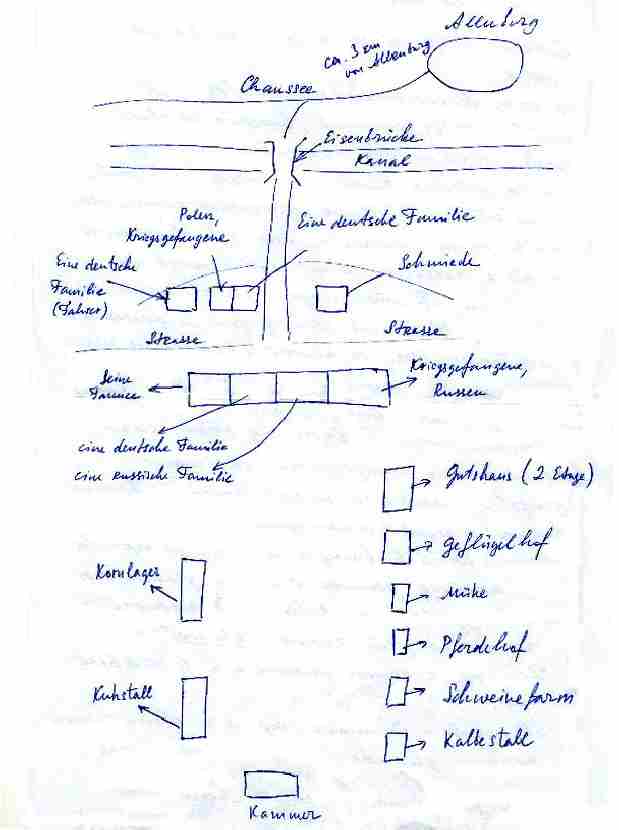 Allenburg
ca. 3 km
von Allenburg
Chaussee
Eisenbrücke
Kanal
Polen,
Kriegsgefangene
Eine deutsche Familie
Eine deutsche
Familie
(Fahrer)
Schmiede
Strasse
Strasse
Kriegsgefangene,
Russen
eine deutsche Familie
eine russische Familie
Gutshaus (2 Etage)
Geflügelhof
Kornlager
Mühe
Pferdehof
Kuhstall
Schweinefarm
Kalbestall
Kammer